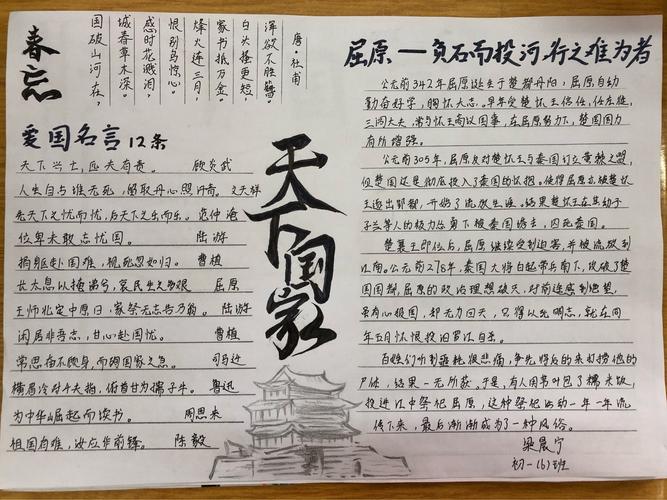 春忘
国破山河在，
城春草木深。
感时花溅泪，
恨别鸟惊心。
烽火连三月，
家书抵万金。
白头搔更短，
浑欲不胜簪。
唐·杜甫
爱国名言12条
天下兴亡，匹夫有责。 顾炎武
人生自古谁无死，留取丹心照汗青。文天祥
先天下之忧而忧，后天下之乐而乐。范仲淹
位卑未敢忘忧国。 陆游
捐躯赴国难，视死忽如归。 曹植
长太息以掩涕兮，哀民生之多艰 屈原
王师北定中原日，家祭无忘告乃翁。 陆游
闲居非吾志，甘心赴国忧。 曹植
常思奋不顾身，而殉国家之急。 司马迁
横眉冷对千夫指，俯首甘为孺子牛。 鲁迅
为中华崛起而读书。 周恩来
祖国有难，汝应作前锋。 陈毅
天下国家
屈原——负石而投河，行之难为者
公元前342年屈原诞生于楚都丹阳，屈原自幼
勤奋好学，胸怀大志。早年受楚怀王信任，任左徒，
三闾大夫，常与怀王商议国事，在屈原努力下，楚国国力
有所增强。
公元前305年，屈原反对楚怀王与秦国订立黄棘之盟，
但楚国还是彻底投入了秦国的怀抱。使得屈原亦被楚怀
王逐出郢都，开始了流放生涯。结果楚怀王在其幼子
子兰等人的极力怂恿下被秦国诱去，囚死秦国。
楚襄王即位后，屈原继续受到迫害，并被流放到
江南。公元前278年，秦国大将白起带兵南下，攻破了楚
国国都，屈原的政治理想破灭，对前途感到绝望，
虽有心报国，却无力回天，只得以死明志，就在同
年五月怀恨投汨罗江自杀。
百姓们听到噩耗很悲痛，争先恐后的来打捞他的
尸体，结果一无所获。于是，有人用苇叶包了糯米饭，
投进江中祭祀屈原，这种祭祀活动一年一年流
传下来，最后渐渐成为了一种风俗。
梁晨宁
初一（6）班